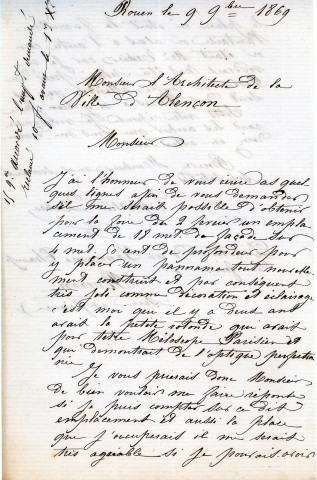 Rouen le 9 9bre 1869
Monsieur l'Architecte de la
Ville d'Alençon
Monsieur
J'ai l'honneur de vous écrire ces quel
ques lignes afin de vous demander
s'il me serait possible d'obtenir
pour la foire du 2 février un empla
cement de 18 met. de façade sur
4 met. 50 cent de profondeur pour
y placer un panorama tout nouvelle
ment construit et par conséquent
très joli comme décoration et éclairage
c'est moi que il y a deux ans
avait la petite rotonde qui avait
pour titre Parisien et
qui démontrait de l'optique perfection
née
Je vous prierais donc Monsieur
de bien vouloir me faire réponse
si je puis compter sur ce dit
emplacement et aussi la place
que j'occuperais il me serait
très agréable si je pourrais avoir